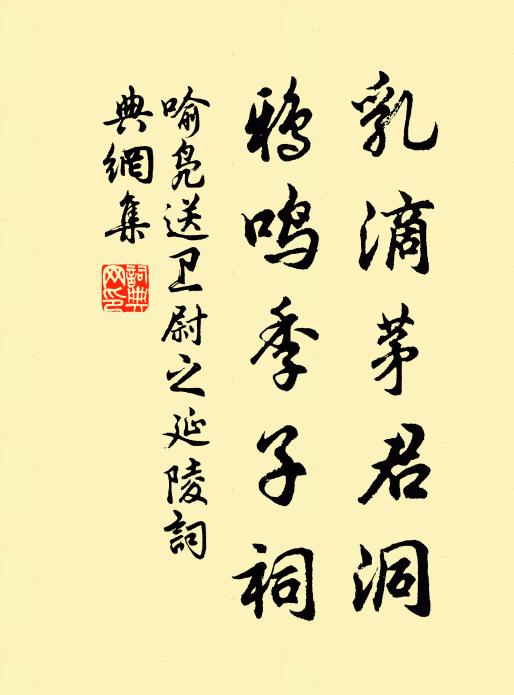 乳滴茅君洞
鸦鸣季子祠
喻凫送卫尉之延陵詞
典網集
詞典網印